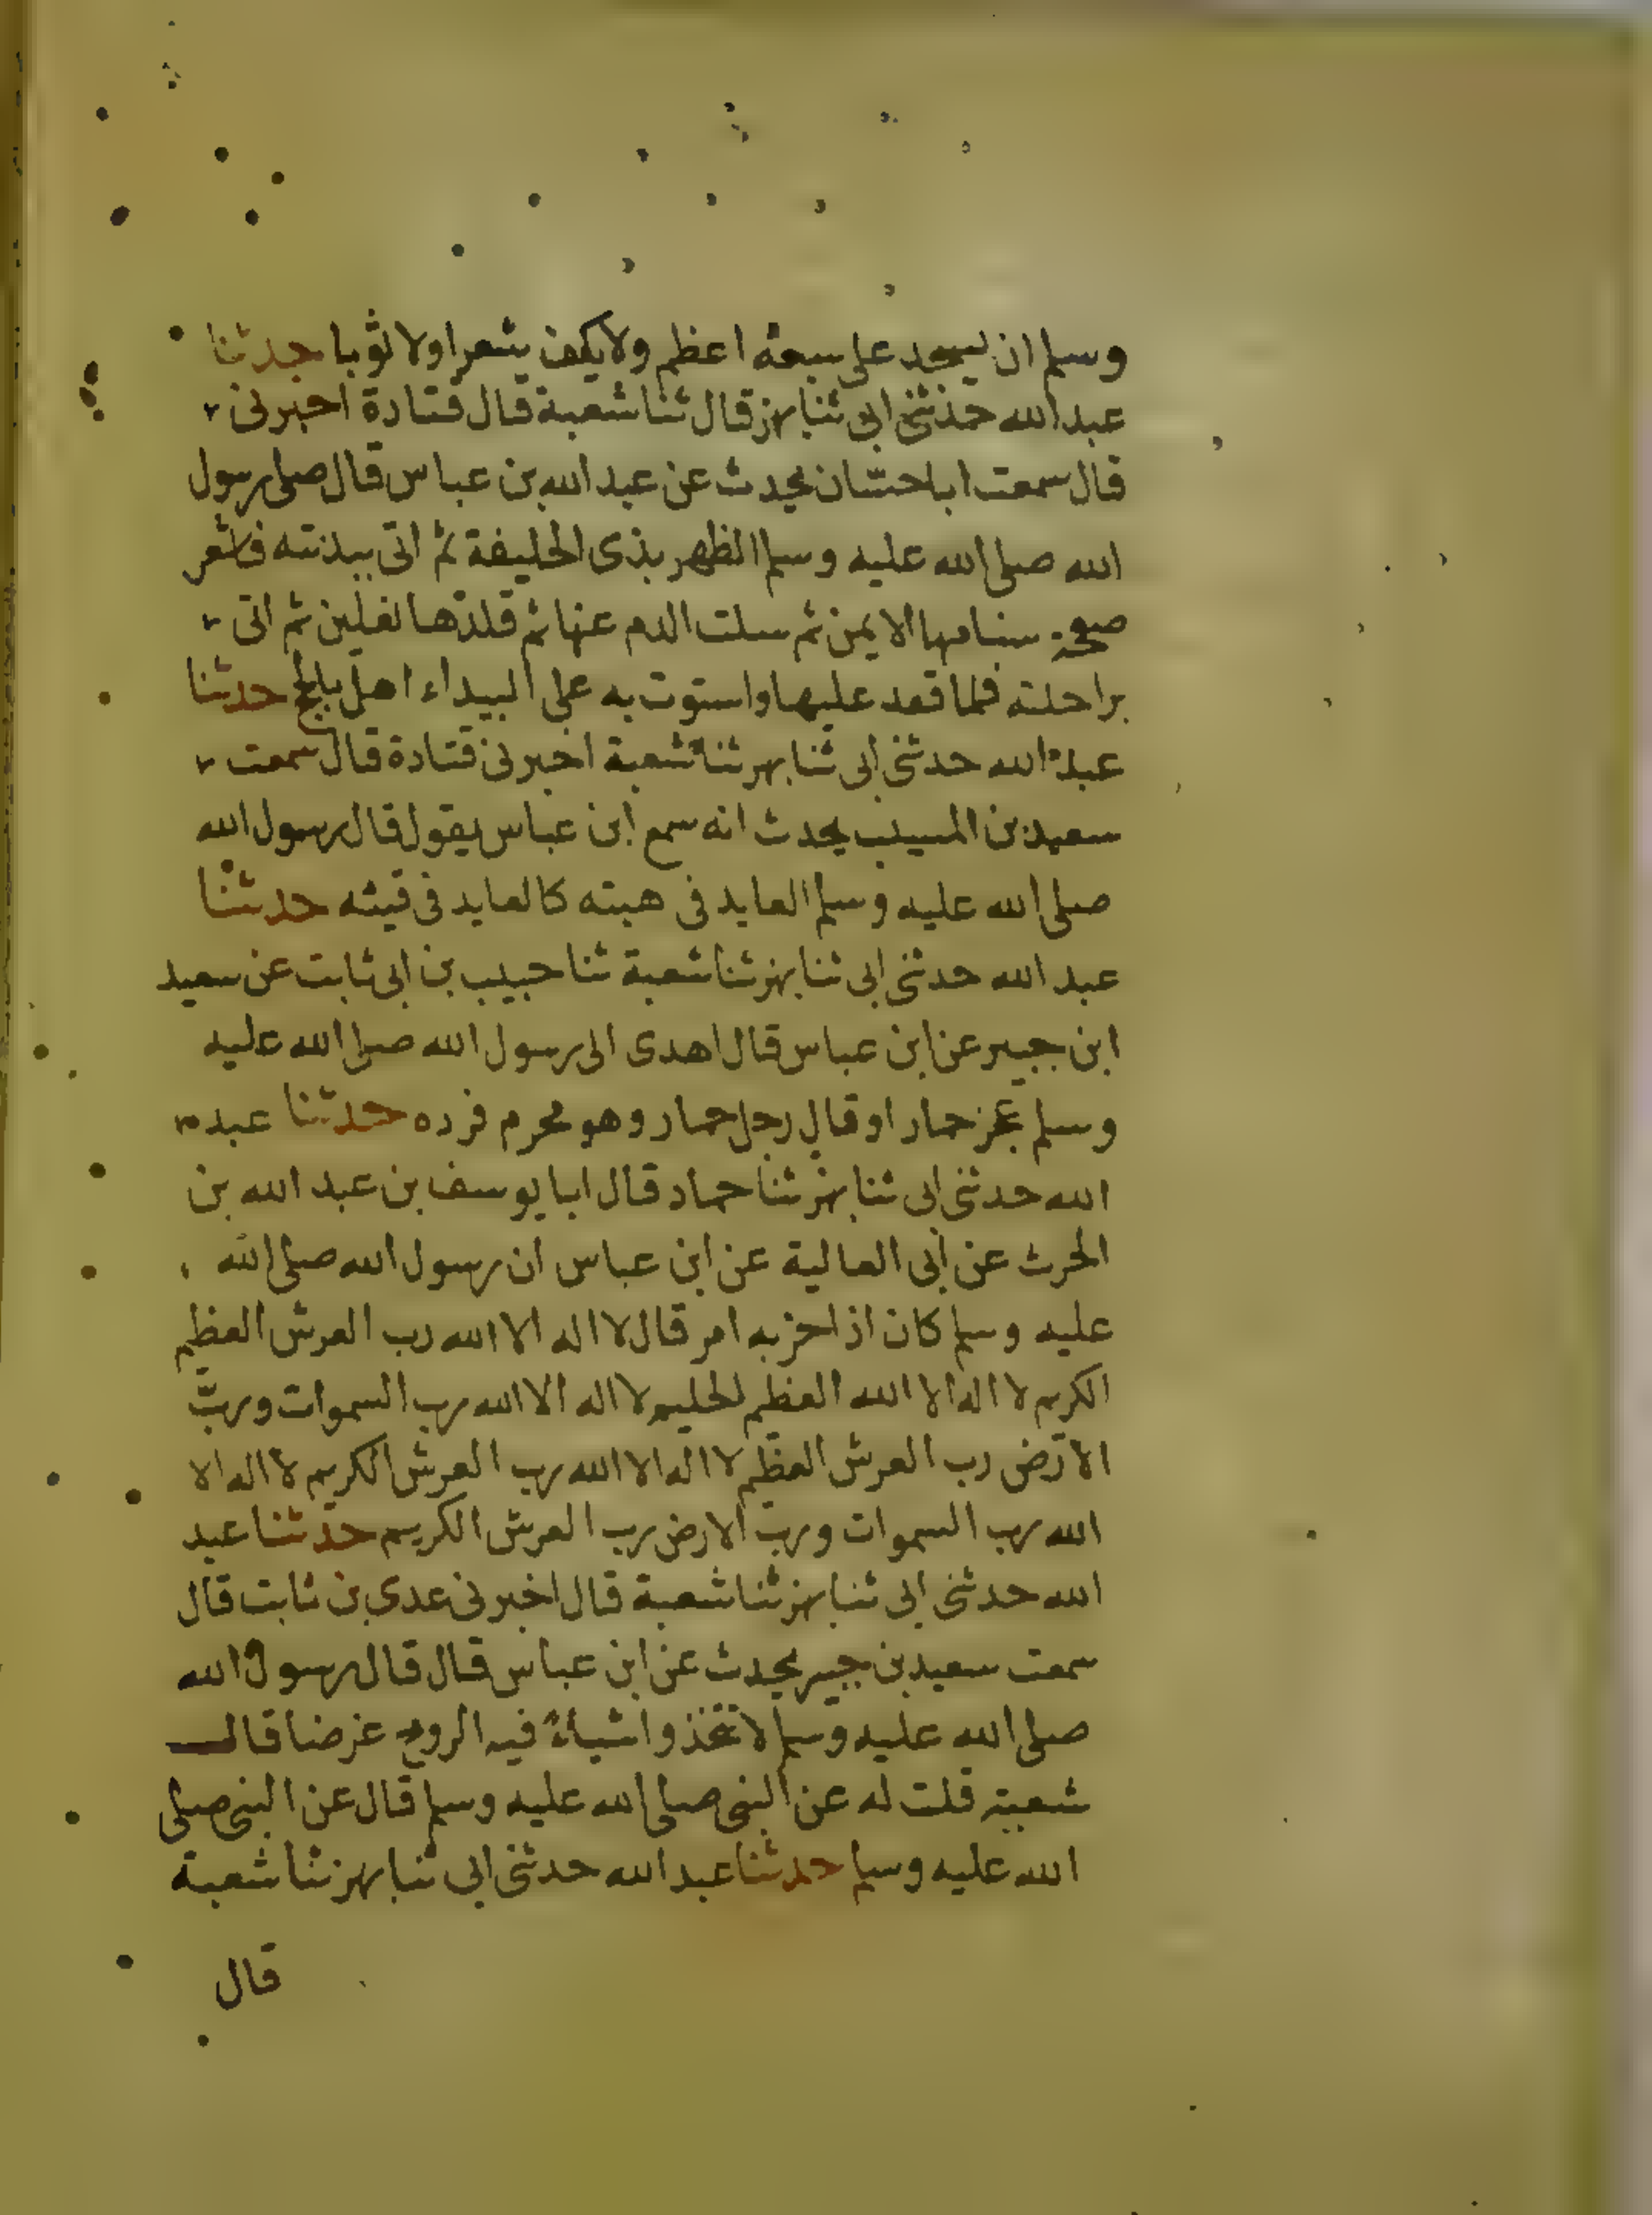 وسلم ان يسجد على سبعة اعظم ولا يكف شعرا ولا ثوبا حدثنا
عبد الله حدثني ابي ثنا بهز قال ثنا شعبة قال قتادة اخبرني
قال سمعت ابا حسّان يحدث عن عبد الله بن عباس قال صلى رسول
الله صلى الله عليه وسلم الظهر بذى الحليفة ثم اتى ببدنته فاشعر
صفحة سنامها الايمن ثم سلت الدم عنها ثم قلدها نعلين ثم اتى
براحلته فلما قعد عليها واستوت به على البيداء اهل بالحج حدثنا
عبد الله حدثني ابى ثنا بهز ثنا شعبة اخبرنى قتادة قال سمعت
سعيد بن المسيب يحدث انه سمع ابن عباس يقول قال رسول الله
صلى الله عليه وسلم العايد فى هبته كالعايد فى قيئه حدثنا
عبد الله حدثنى ابى ثنا بهز ثنا شعبة ثنا حبيب بن ابى ثابت عن سعيد
ابن جبير عن ابن عباس قال اهدى الى رسول الله صلى الله عليه
وسلم عجز حمار او قال رجل حمار وهو محرم فرده حدثنا عبد
الله حدثنى ابى ثنا بهز ثنا حماد قال ابنا يوسف بن عبد الله بن
الحرث عن ابى العالية عن ابن عباس ان رسول الله صلى الله
عليه وسلم كان اذا حزبه امر قال لا اله الا الله رب العرش العظيم
الكريم لا اله الا الله العظيم الحليم لا اله الا الله رب السموات وربّ
الارض رب العرش العظيم لا اله الا الله رب العرش الكريم لا اله الا
الله رب السموات ورب الارض رب العرش الكريم حدثنا عبد
الله حدثنى ابى ثنا بهز ثنا شعبة قال اخبرنى عدى بن ثابت قال
سمعت سعيد بن جبير يحدث عن ابن عباس قال قال رسول الله
صلى الله عليه وسلم لا تتخذوا شيأ فيه الروح غرضا قال
شعبة قلت له عن النبى صلى الله عليه وسلم قال عن النبى صلى
الله عليه وسلم حدثنا عبد الله حدثنى ابى ثنا بهز ثنا شعبة
قال